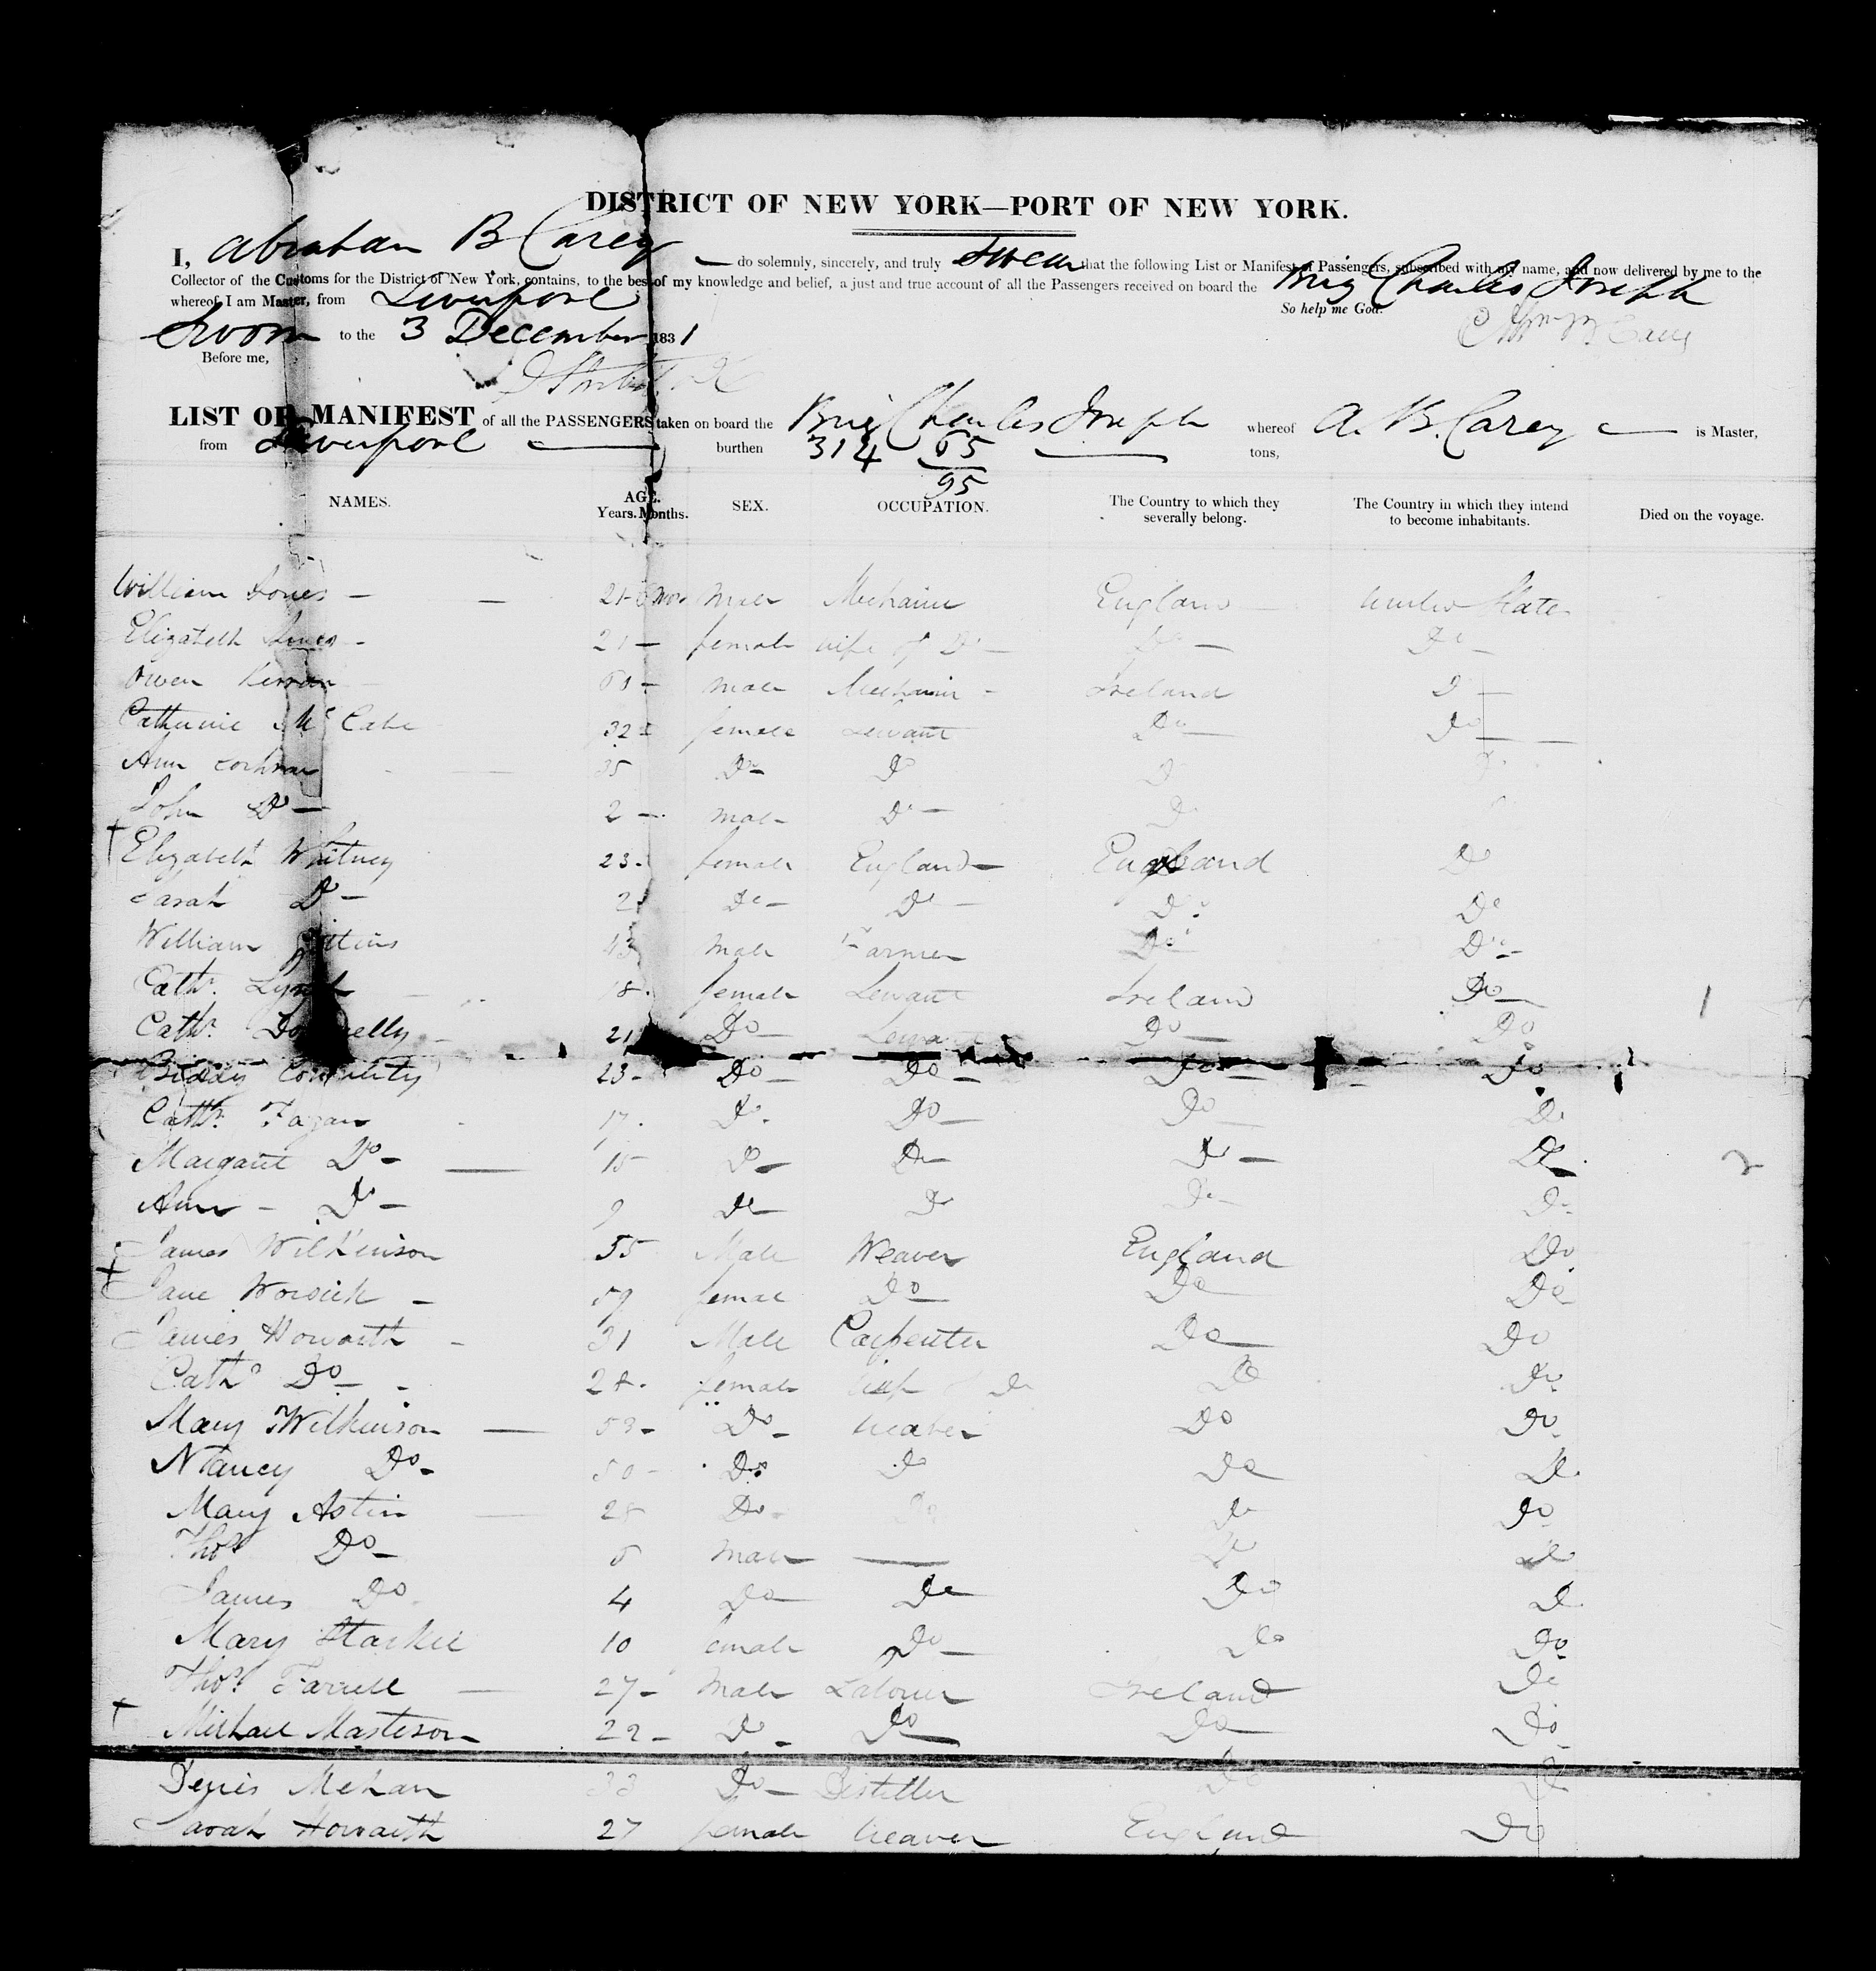 DISTRICT OF NEW YORK—PORT OF NEW YORK.
I, Abraham B Carey — do solemnly, sincerely, and truly Swear that the following List or Manifest of Passengers, subscribed with my name, and now delivered by me to the
Collector of the Customs for the District of New York, contains, to the best of my knowledge and belief, a just and true account of all the Passengers received on board the Brig Charles Joseph
whereof I am Master, from Liverpool
So help me God.
Sworn to the 3 December 1831
Before me,
LIST OR MANIFEST of all the PASSENGERS taken on board the Brig Charles Joseph whereof A. B. Carey — is Master,
from Liverpool — burthen 314 65/95 tons,
NAMES. AGE. Years. Months. SEX. OCCUPATION. The Country to which they severally belong. The Country in which they intend to become inhabitants. Died on the voyage.
William Jones — 21 - 6 Mos Male Mechanic England United States
Elizabeth Jones - 21 — female wife of Do — Do — Do —
Owen male Mechanic - Ireland D —
Catharine Mc Cabe 32 female Servant Do — Do —
Ann Cochran 35 Do — D D D
John Do — 2 — male Do — Do
Elizabeth Whitney 23 - female England — England Do
Sarah Do — 2 Do — Do — Do Do
William 43 male Farmer Do Do —
Cathr. Lynch 18 - female Servant Ireland Do —
Cathr. Donnelly - 21 Do — Servant Do — Do
Biddy 23 - Do — Do — Do — Do
Cathr. Fagan 17 - Do - Do — Do — Do
Margaret Do — 15 Do — Do — Do — Do — 2
Ann - Do — 9 Do — Do Do — Do
James Wilkinson 55 Male Weaver England Do
Jane — 59 female Do Do Do
James Howarth - 31 Male Carpenter Do Do
Cathe Do — 28 - female wife of Do Do Do
Mary Wilkinson — 53 - Do — weaver Do Do
Nancy Do — 50 - Do Do Do Do
Mary Astin 28 Do - Do Do Do
Thos Do — male — Do Do
James Do 4 Do — Do Do Do
Mary Starkie 10 female Do — Do Do
Thos. Farrell — 27 - Male Labourer Ireland Do
Michael Masterson — 22 - Do — Do Do — Do
Denis Mehan 33 Do — Distiller Do Do
Sarah Howarth 27 female Weaver England Do